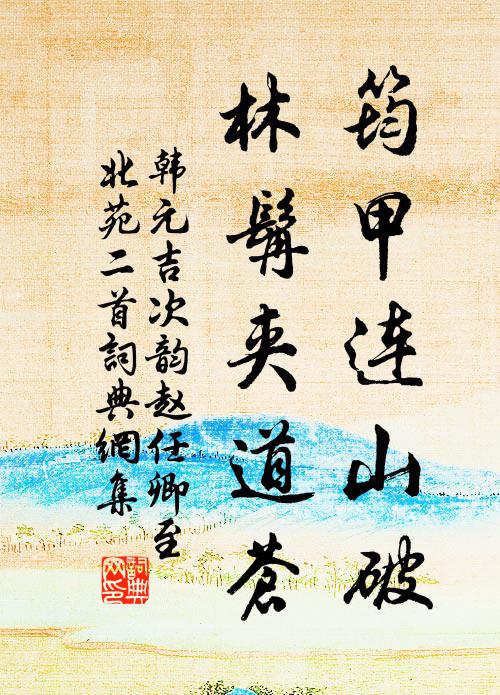 筠甲连山破
林髯夹道苍
韩元吉次韵赵任卿至
北苑二首詞典網集
詞典
网印